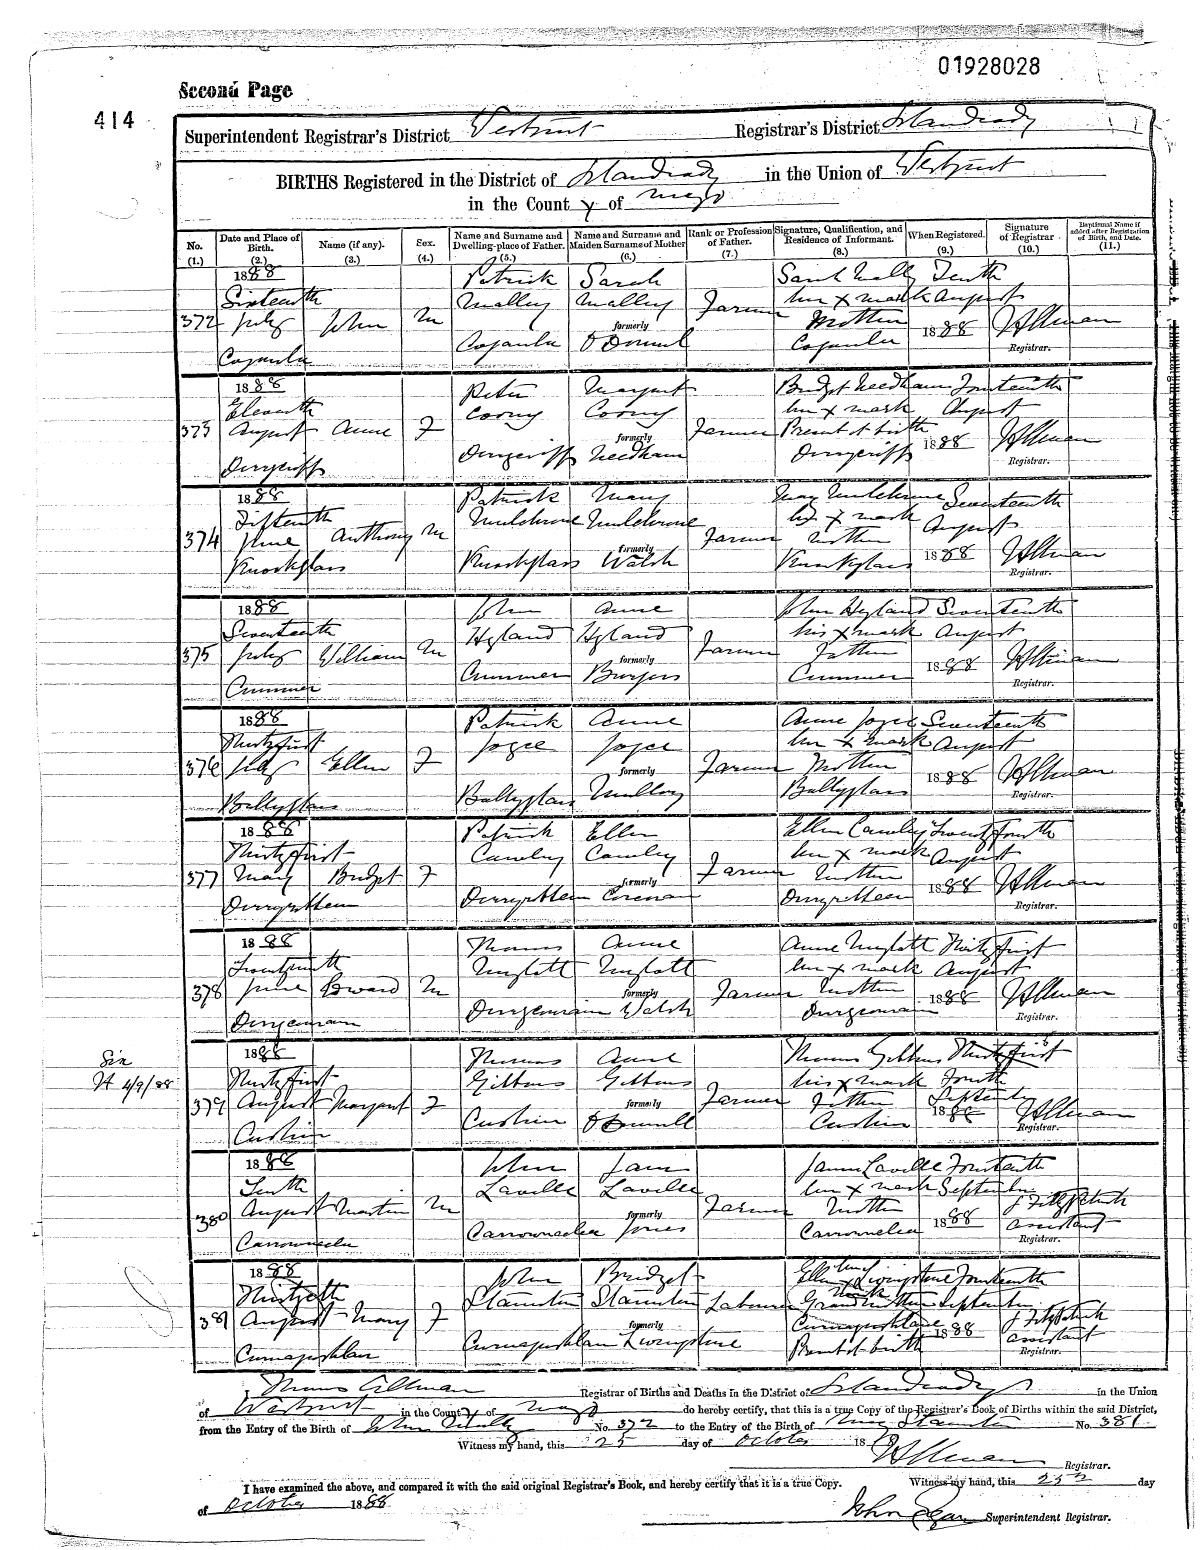 01928028
Second Page
414
Superintendent Registrar's District Westport Registrar's District Islandeady
BIRTHS Registered in the District of Islandeady in the Union of Westport
in the County of Mayo
No. (1.) Date and Place of Birth. (2.) Name (if any). (3.) Sex. (4.) Name and Surname and Dwelling-place of Father. (5.) Name and Surname and Maiden Surname of Mother (6.) Rank or Profession of Father. (7.) Signature, Qualification, and Residence of Informant. (8.) When Registered. (9.) Signature of Registrar (10.) Baptismal Name if added after Registration of Birth, and Date. (11.)
1888 Patrick Sarah Sarah Malley Tenth
Sixteenth Malley Malley her x mark August
372 July John M formerly Farmer Mother 1888 Registrar.
O'Donnel
1888 Peter Margaret Bridget Needham Fourteenth
Eleventh her x mark August
373 August Anne F formerly Farmer Present at birth 1888
Derrycriff Derrycriff Needham Derrycriff Registrar.
1888 Patrick Mary Mary Seventeenth
Fifteenth her x mark August
374 June Anthony M formerly Farmer Mother 1888
Knockglass Knockglass Walsh Knockglass Registrar.
1888 John Anne John Hyland Seventeenth
Seventeenth Hyland Hyland his x mark August
375 July William M formerly Farmer Father 1888
Cummer Cummer Burgess Cummer Registrar.
1888 Patrick Anne Anne Joyce Seventeenth
Thirty first Joyce Joyce her x mark August
376 July Ellen F formerly Farmer Mother 1888
Ballyglass Ballyglass Mulloy Ballyglass Registrar.
1888 Patrick Ellen Ellen Cawley Twenty fourth
Thirty first Cawley Cawley her x mark August
377 May Bridget F formerly Farmer Mother 1888
Registrar.
1888 Thomas Anne Anne Thirty first
her x mark August
378 June Edward M formerly Farmer Mother 1888
Walsh Registrar.
Six
4/9/88
1888 Thomas Anne Thomas Gibbons Thirty first
Thirty first Gibbons Gibbons his x mark Fourth
379 August Margaret F formerly Farmer Father September 1888
Cushin Cushin O'Donnell Cushin Registrar.
1888 John Jane Lavelle Fourteenth
Tenth Lavelle Lavelle her x mark September
380 August Martin M formerly Farmer Mother 1888 J Fitzpatrick
Jones assistant Registrar.
1888 John Bridget Ellen Livingstone Fourteenth
Staunton Staunton Labourer Grandmother September
381 August Mary F formerly 1888 J Fitzpatrick
Livingstone Present at birth assistant Registrar.
Thomas Allman Registrar of Births and Deaths in the District of Islandeady in the Union
of Westport in the County of Mayo do hereby certify, that this is a true Copy of the Registrar's Book of Births within the said District,
from the Entry of the Birth of John Malley No. 372 to the Entry of the Birth of Mary Staunton No. 381.
Witness my hand, this 25 day of October 18
Registrar.
I have examined the above, and compared it with the said original Registrar's Book, and hereby certify that it is a true Copy. Witness my hand, this day
of October 1888
John Superintendent Registrar.